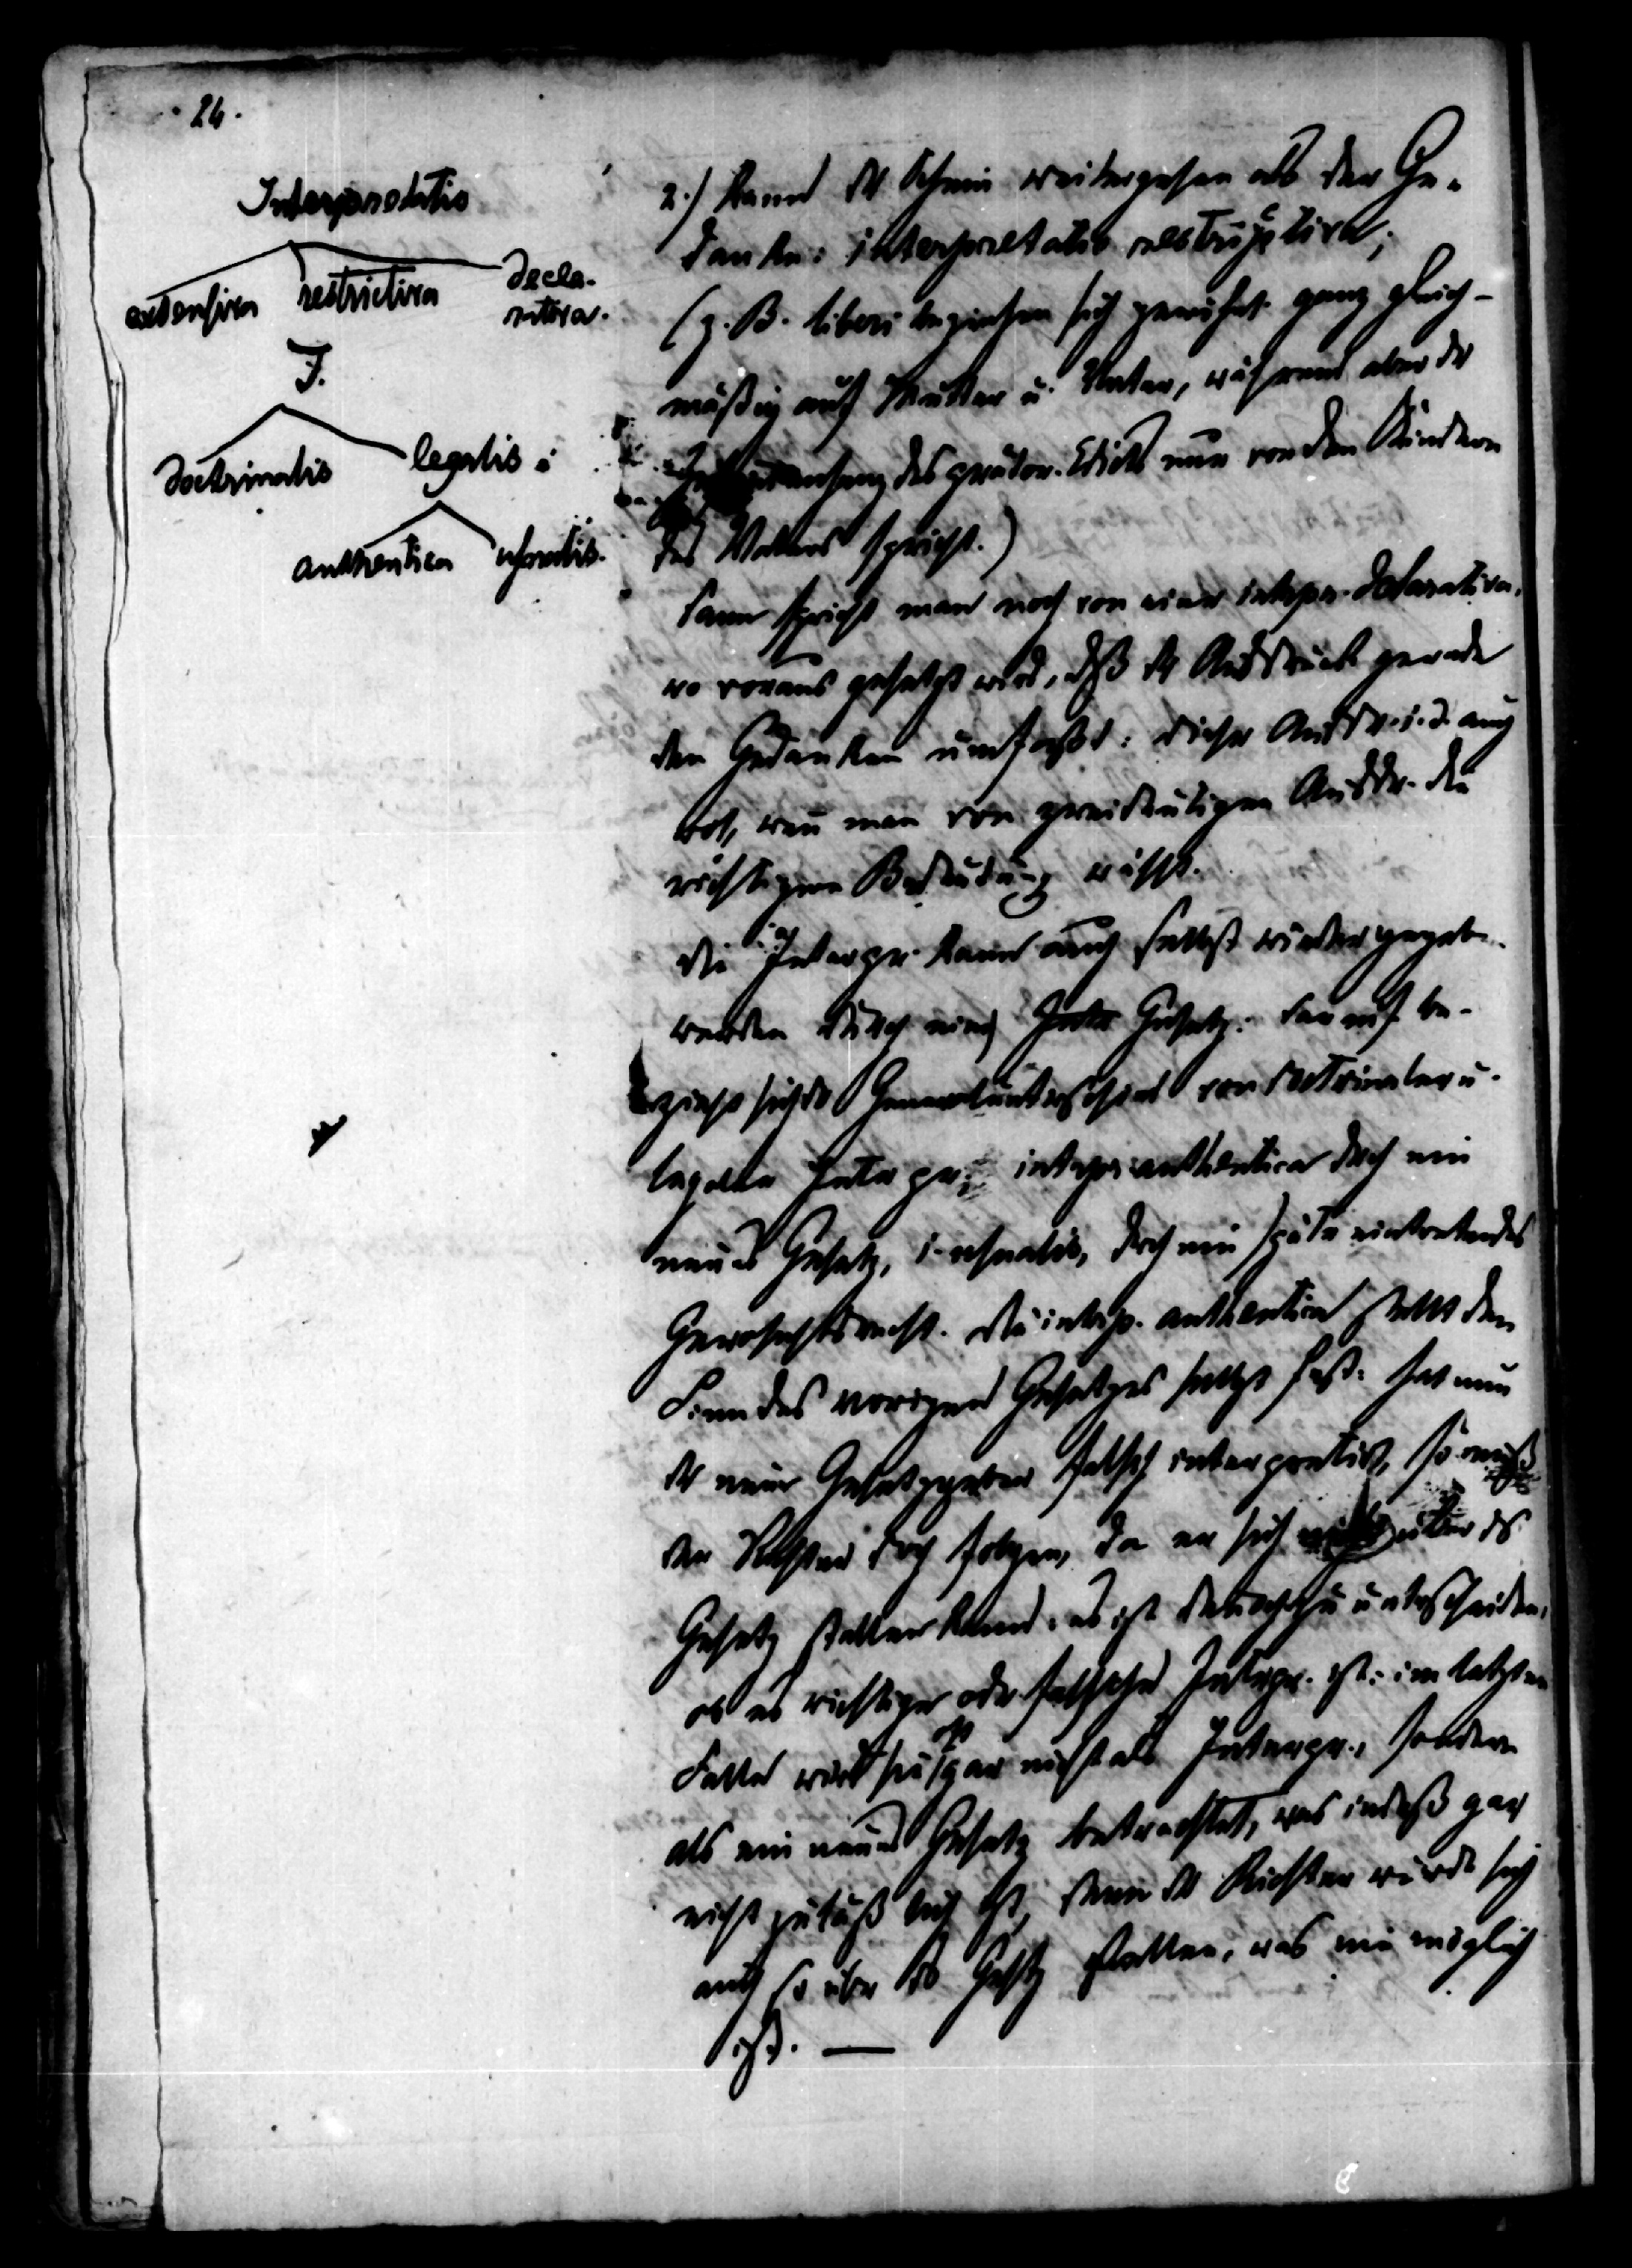 24.
Interpretatio
extensiva restrictiva decla-
rativa.
I.
doctrinalis legalis:
authentica usualis.
2.) Kann der Schein weitergehen als der Ge-
danke: interpretatio restrictiva;
(z. B. liberi beziehen sich gewöhnl. ganz gleich-
mäßig auf Mutter u. Vater, während aber der
des prätor. Edicts nur von den Kindern
des Vaters spricht.)
Dann spricht man noch von einer interpr. declarativa,
wo voraus gesetzt wird, dß der Ausdruck gerade
den Gedanken umfaßt: dieser Ausdr. i. d. auch
wo, wenn man von zweideutigen Ausdr. die
richtigere Bedeutung wählt.
die Interpr. kann auch selbst wieder gegeben
werden durch Gesetz: darauf be-
zieht sich der Unterschied von doctrinaler u.
legaler Interpr; interpr. authentica dch ein
neues Gesetz, i. usualis, dch ein später eintretendes
Gewohnheitsrecht. die interp. authentica stellt den
Sinn des vorigen Gesetzes selbst fest. Hat nun
der neue Gesetzgeber falsch interpretirt, so muß
der Richter doch folgen, da er sich nicht über ds
Gesetz stellen kann. es ist danach zu unterscheiden,
ob es richtige oder falsche Interpr. ist: im letzten
Falle wird sie oft gar nicht als Interpr., sondern
als ein neues Gesetz betrachtet, was indeß gar
nicht zuläßlich ist, denn der Richter würde sich
auch so über ds Gesetz stellen, was nie möglich
ist. —